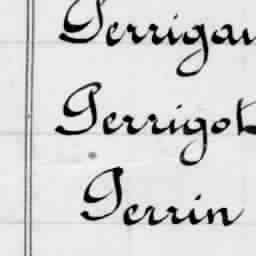 Perrigau
Perrigot
Perrin